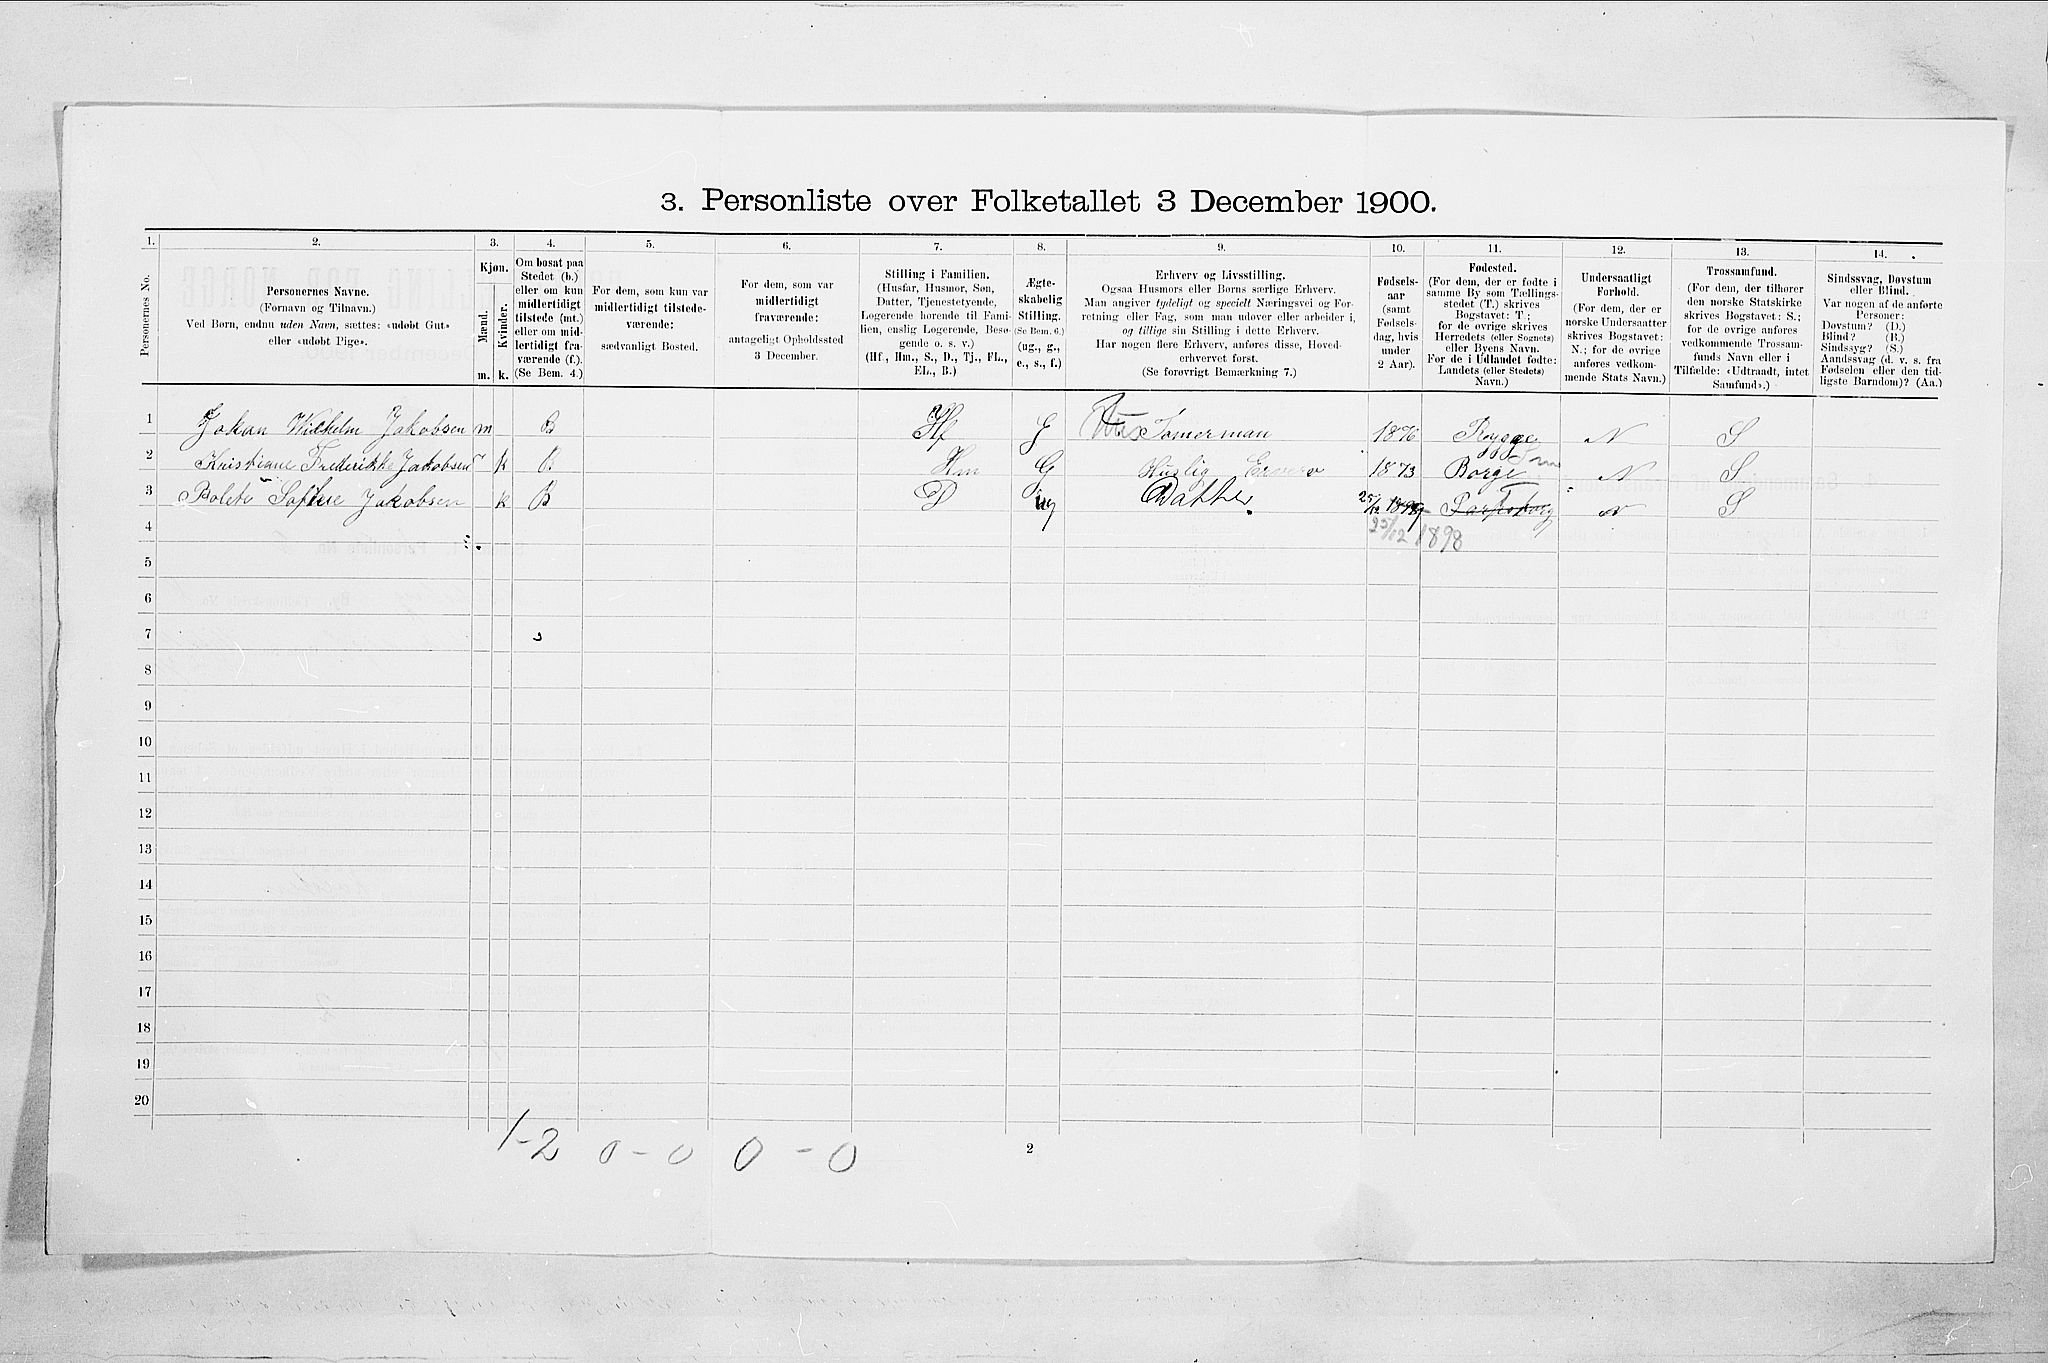 3. Personliste over Folketallet 3 December 1900.
1. 2. 3. 4. 5. 6. 7. 8. 9. 10. 11. 12. 13. 14.
Personernes No.
Personernes Navne.
(Fornavn og Tilnavn.)
Ved Børn, endnu uden Navn, sættes: «udøbt Gut»
eller «udøbt Pige».
Kjøn.
Mænd.
Kvinder.
m. k.
Om bosat paa
Stedet (b.)
eller om kun
midlertidigt
tilstede (mt.)
eller om mid-
lertidigt fra-
værende (f.).
(Se Bem. 4.)
For dem, som kun var
midlertidigt tilstede-
værende:
sædvanligt Bosted.
For dem, som var
midlertidigt
fraværende:
antageligt Opholdssted
3 December.
Stilling i Familien.
(Husfar, Husmor, Søn,
Datter, Tjenestetyende,
Logerende hørende til Fami-
lien, enslig Logerende, Besø-
gende o. s. v.)
(Hf., Hm., S., D., Tj., FL.,
EL., B.)
Ægte-
skabelig
Stilling.
(Se Bem. 6.)
(ug., g.,
e., s., f.)
Erhverv og Livsstilling.
Ogsaa Husmors eller Børns særlige Erhverv.
Man angiver tydeligt og specielt Næringsvei og For-
retning eller Fag, som man udøver eller arbeider i,
og tillige sin Stilling i dette Erhverv.
Har nogen flere Erhverv, anføres disse, Hoved-
erhvervet først.
(Se forøvrigt Bemærkning 7.)
Fødsels-
aar
(samt
Fødsels-
dag, hvis
under
2 Aar).
Fødested.
(For dem, der er fødte i
samme By som Tællings-
stedet (T.) skrives
Bogstavet: T;
for de øvrige skrives
Herredets (eller Sognets)
eller Byens Navn.
For de i Udlandet fødte:
Landets (eller Stedets)
Navn.)
Undersaatligt
Forhold.
(For dem, der er
norske Undersaatter
skrives Bogstavet:
N.; for de øvrige
anføres vedkom-
mende Stats Navn.)
Trossamfund.
(For dem, der tilhører
den norske Statskirke
skrives Bogstavet: S.;
for de øvrige anføres
vedkommende Trossam-
funds Navn eller i
Tilfælde: «Udtraadt, intet
Samfund».)
Sindssvag, Døvstum
eller Blind.
Var nogen af de anførte
Personer:
Døvstum? (D.)
Blind? (B.)
Sindssyg? (S.)
Aandssvag (d. v. s. fra
Fødselen eller den tid-
ligste Barndom)? (Aa.)
1 Johan Wilhelm Jakobsen m B Hf G Tømerman 1876 Rygge N S
2 Kristiane Frederikke Jakobsen k B Hm G Huslig Erverv 1873 Borge N S
3 Bolete Sofhie Jakobsen k B D ug Datter 25/12 1898 Sarpsborg T N S
25/12 1898
4
5
6
7
8
9
10
11
12
13
14
15
16
17
18
19
20
1-2 0-0 0-0
2